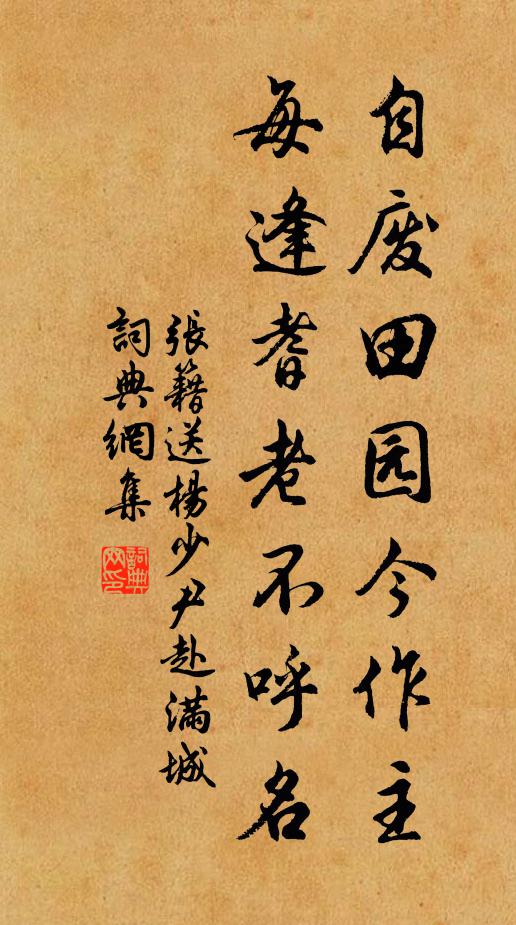 自废田园今作主
每逢耆老不呼名
張籍送楊少尹赴滿城
詞典網集
詞典網印